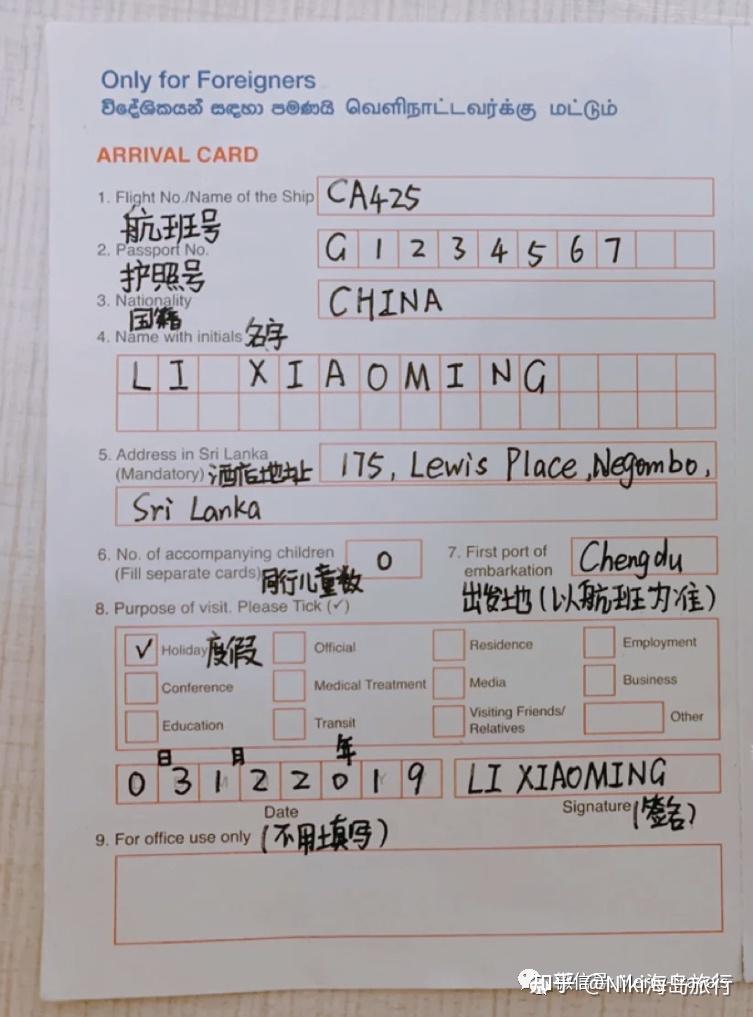 Only for Foreigners
විදේශිකයන් සඳහා පමණයි வெளிநாட்டவர்க்கு மட்டும்
ARRIVAL CARD
1. Flight No./Name of the Ship CA425
航班号
2. Passport No. G1234567
护照号
3. Nationality CHINA
国籍
4. Name with initials 名字
LI XIAOMING
5. Address in Sri Lanka
(Mandatory) 酒店地址 175, Lewis Place, Negombo,
Sri Lanka
6. No. of accompanying children 0
(Fill separate cards) 同行儿童数
7. First port of
embarkation Chengdu
出发地(以航班为准)
8. Purpose of visit. Please Tick (✓)
✓ Holiday 度假 Official Residence Employment
Conference Medical Treatment Media Business
Education Transit Visiting Friends/
Relatives Other
日 月 年
03122019 LI XIAOMING
Date Signature (签名)
9. For office use only (不用填写)
知乎 @Niki海岛旅行